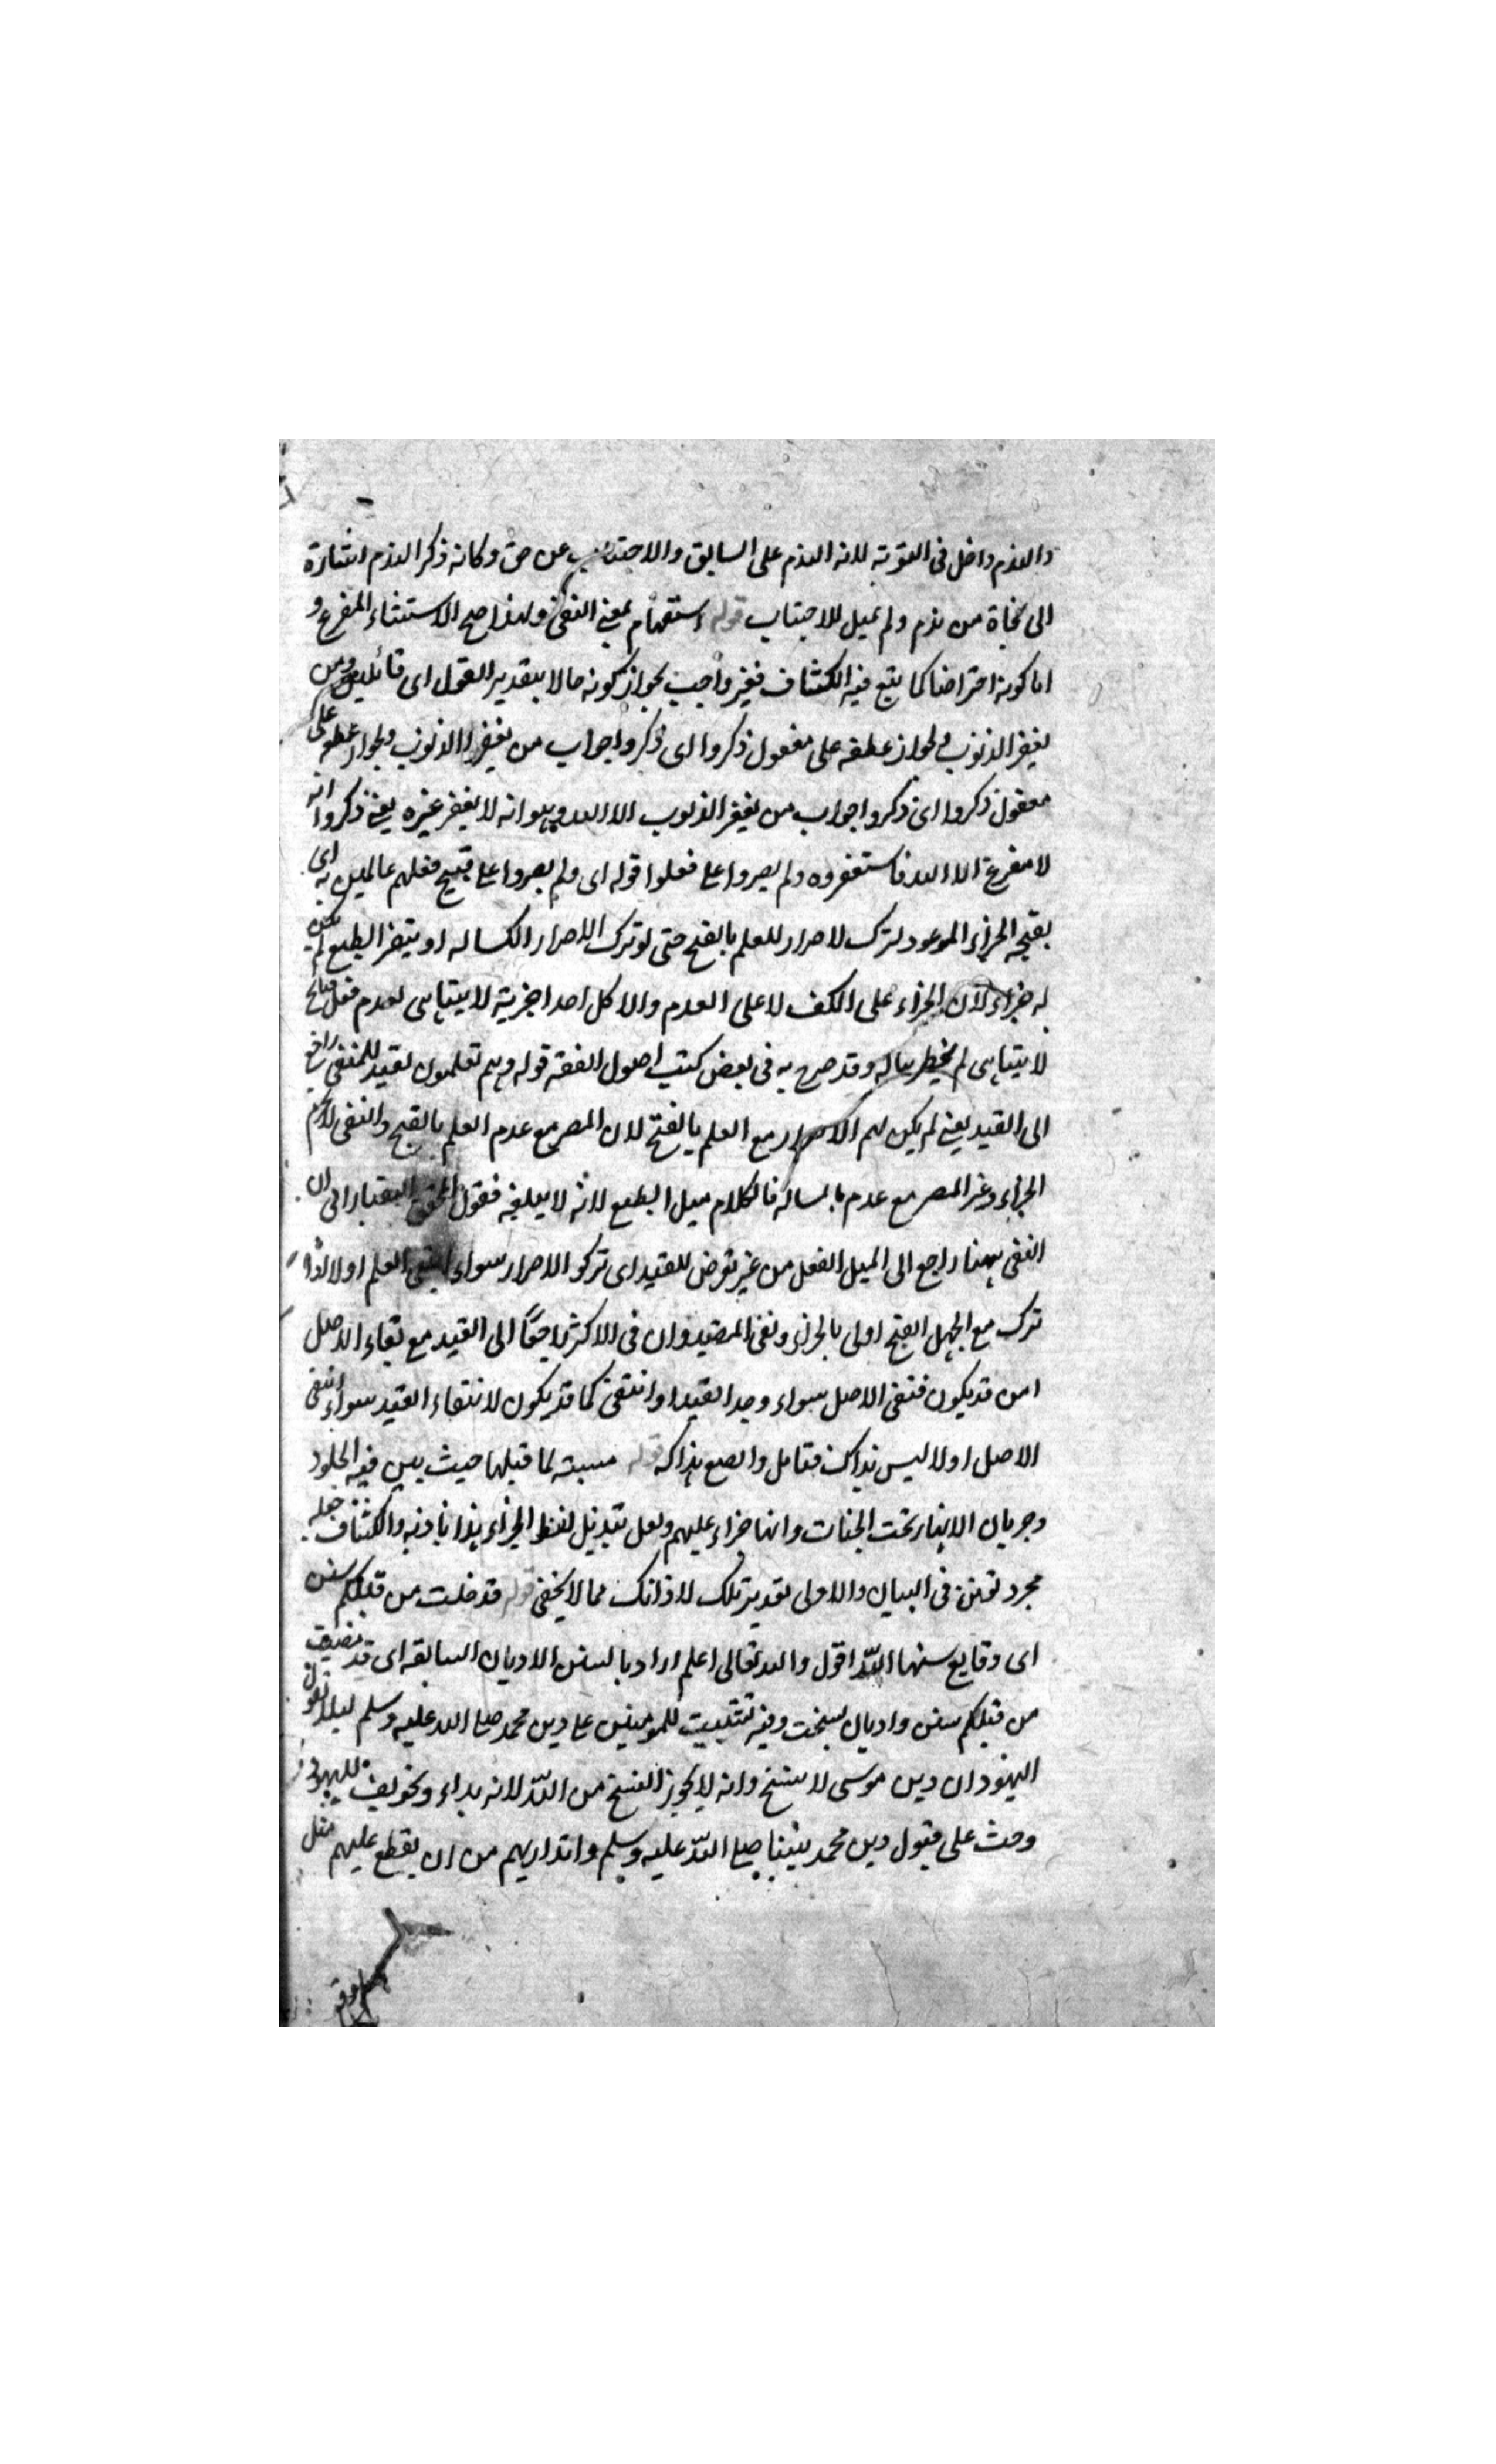 والندم داخل فى التوبة لانه الندم على السابق والاجتناب عن حق وكانه ذكر الندم اشارة
الى نجاة من ندم ولم يميل للاجتناب قوله استفهام بمعنى النفى ولهذا صح الاستثناء المفرغ و
اما كونه اعتراضا كما يتبع فيه الكشاف فغير واجب لجواز كونه حالا بتقدير القول اى قائلين ومن
يغفر الذنوب ولجواز عطفه على مفعول ذكروا اى ذكروا جواب من يغفر الذنوب ولجواز عطفه على
مفعول ذكروا اى ذكروا جواب من يغفر الذنوب الا الله وهو انه لا يغفر غيره يعنى ذكروا انه
لا مفرغ الا الله فاستغفروه ولم يصروا على ما فعلوا قوله اى ولم يصروا على قبيح فعلهم عالمين به اى
بقبحه الجزاء الموعود لترك لاصرار للعلم بالقبح حتى لو ترك الاصرار الكسالة او يتنفر الطبع لم يكن
له جزاء لان الجزاء على الكف لا على العدم والا لكل احد اجزية لا يتناهى لعدم فعل قبائح
لا يتناهى لم يخطر بباله وقد صرح به فى بعض كتب اصول الفقه قوله وهم تعلمون تقييد للمنفى راجع
الى القيد يعنى لم يكن لهم الاصرار مع العلم بالقبح لان المصر مع عدم العلم بالقبح والنفى لازم
الجزاء وغير المصر مع عدم بالمسالة فالكلام ميل الطبع لانه لا يبلغه فقول المحقق التفتازانى ان
النفى ههنا راجع الى الميل الفعل من غير تعرض للقيد اى تركوا الاصرار سواء انتفى العلم اولا لانه
ترك مع الجهل القبح اولى بالجزاء ونفى المقيد وان فى الاكثر راجعًا الى القيد مع بقاء الاصل
امن قد يكون فنفى الاصل سواء وجد القيد او انتفى كما قد يكون لانتفاء القيد سواء انتفى
الاصل اولا ليس بذاك فتامل وانصع بذاكه قوله مسببة لما قبلها حيث بين فيه الخلود
وجريان الانهار تحت الجنات وانها جزاء عليهم ولعل تبديل لفظ الجزاء والكشاف جعله
مجرد تفنن فى البيان والاولى تقدير تلك لا ذانك مما لا يخفى قوله قد خلت من قبلكم سنن
اى وقايع سنها الله اقول والله تعالى اعلم اراد بالسنن الاديان السابقة اى قد مضيت
من قبلكم سنن واديان نسخت وفيه تثبيت للمومنين على دين محمد صلى الله عليه وسلم ليلا يقول
اليهود ان دين موسى لا ينسخ وانه لا يجوز النسخ من الله لانه بداء وتخويف لليهود
وحث على قبول دين محمد نبينا صلى الله عليه وسلم وانذارهم من ان يقطع عليهم مثل